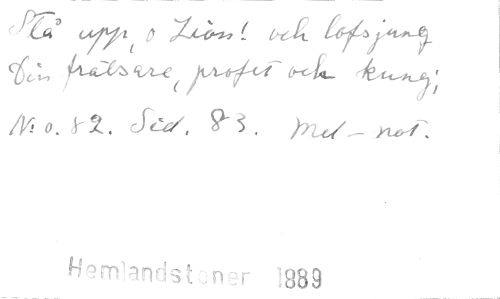 Stå upp, o Zion! och lofsjung
Din frälsare, profet och kung;
N:o. 82. Sid. 83. Mel-not.
Hemlandstoner 1889